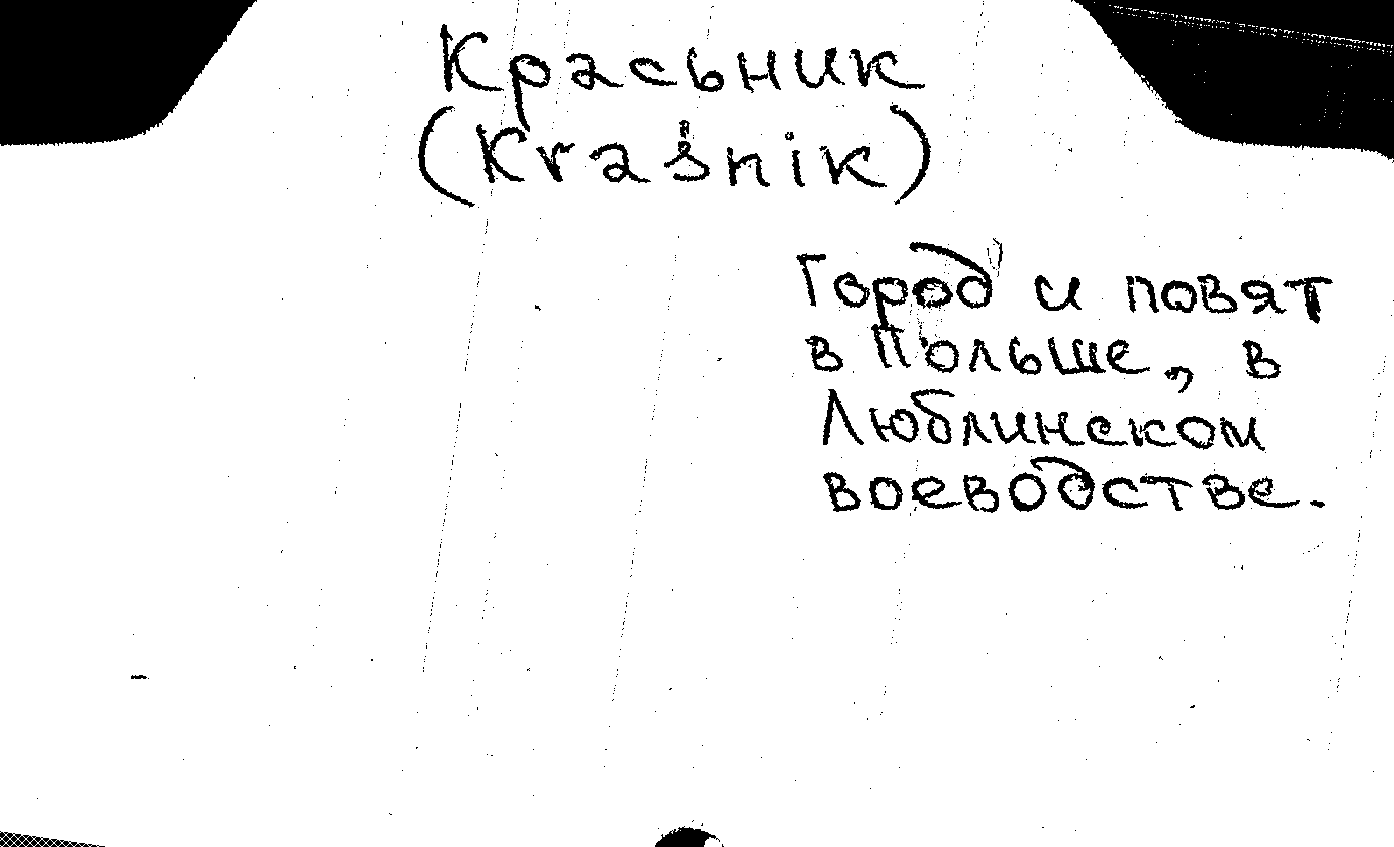 Красьник
(Kraśnik)
Город и повят
в Польше, в
Люблинском
воеводстве.